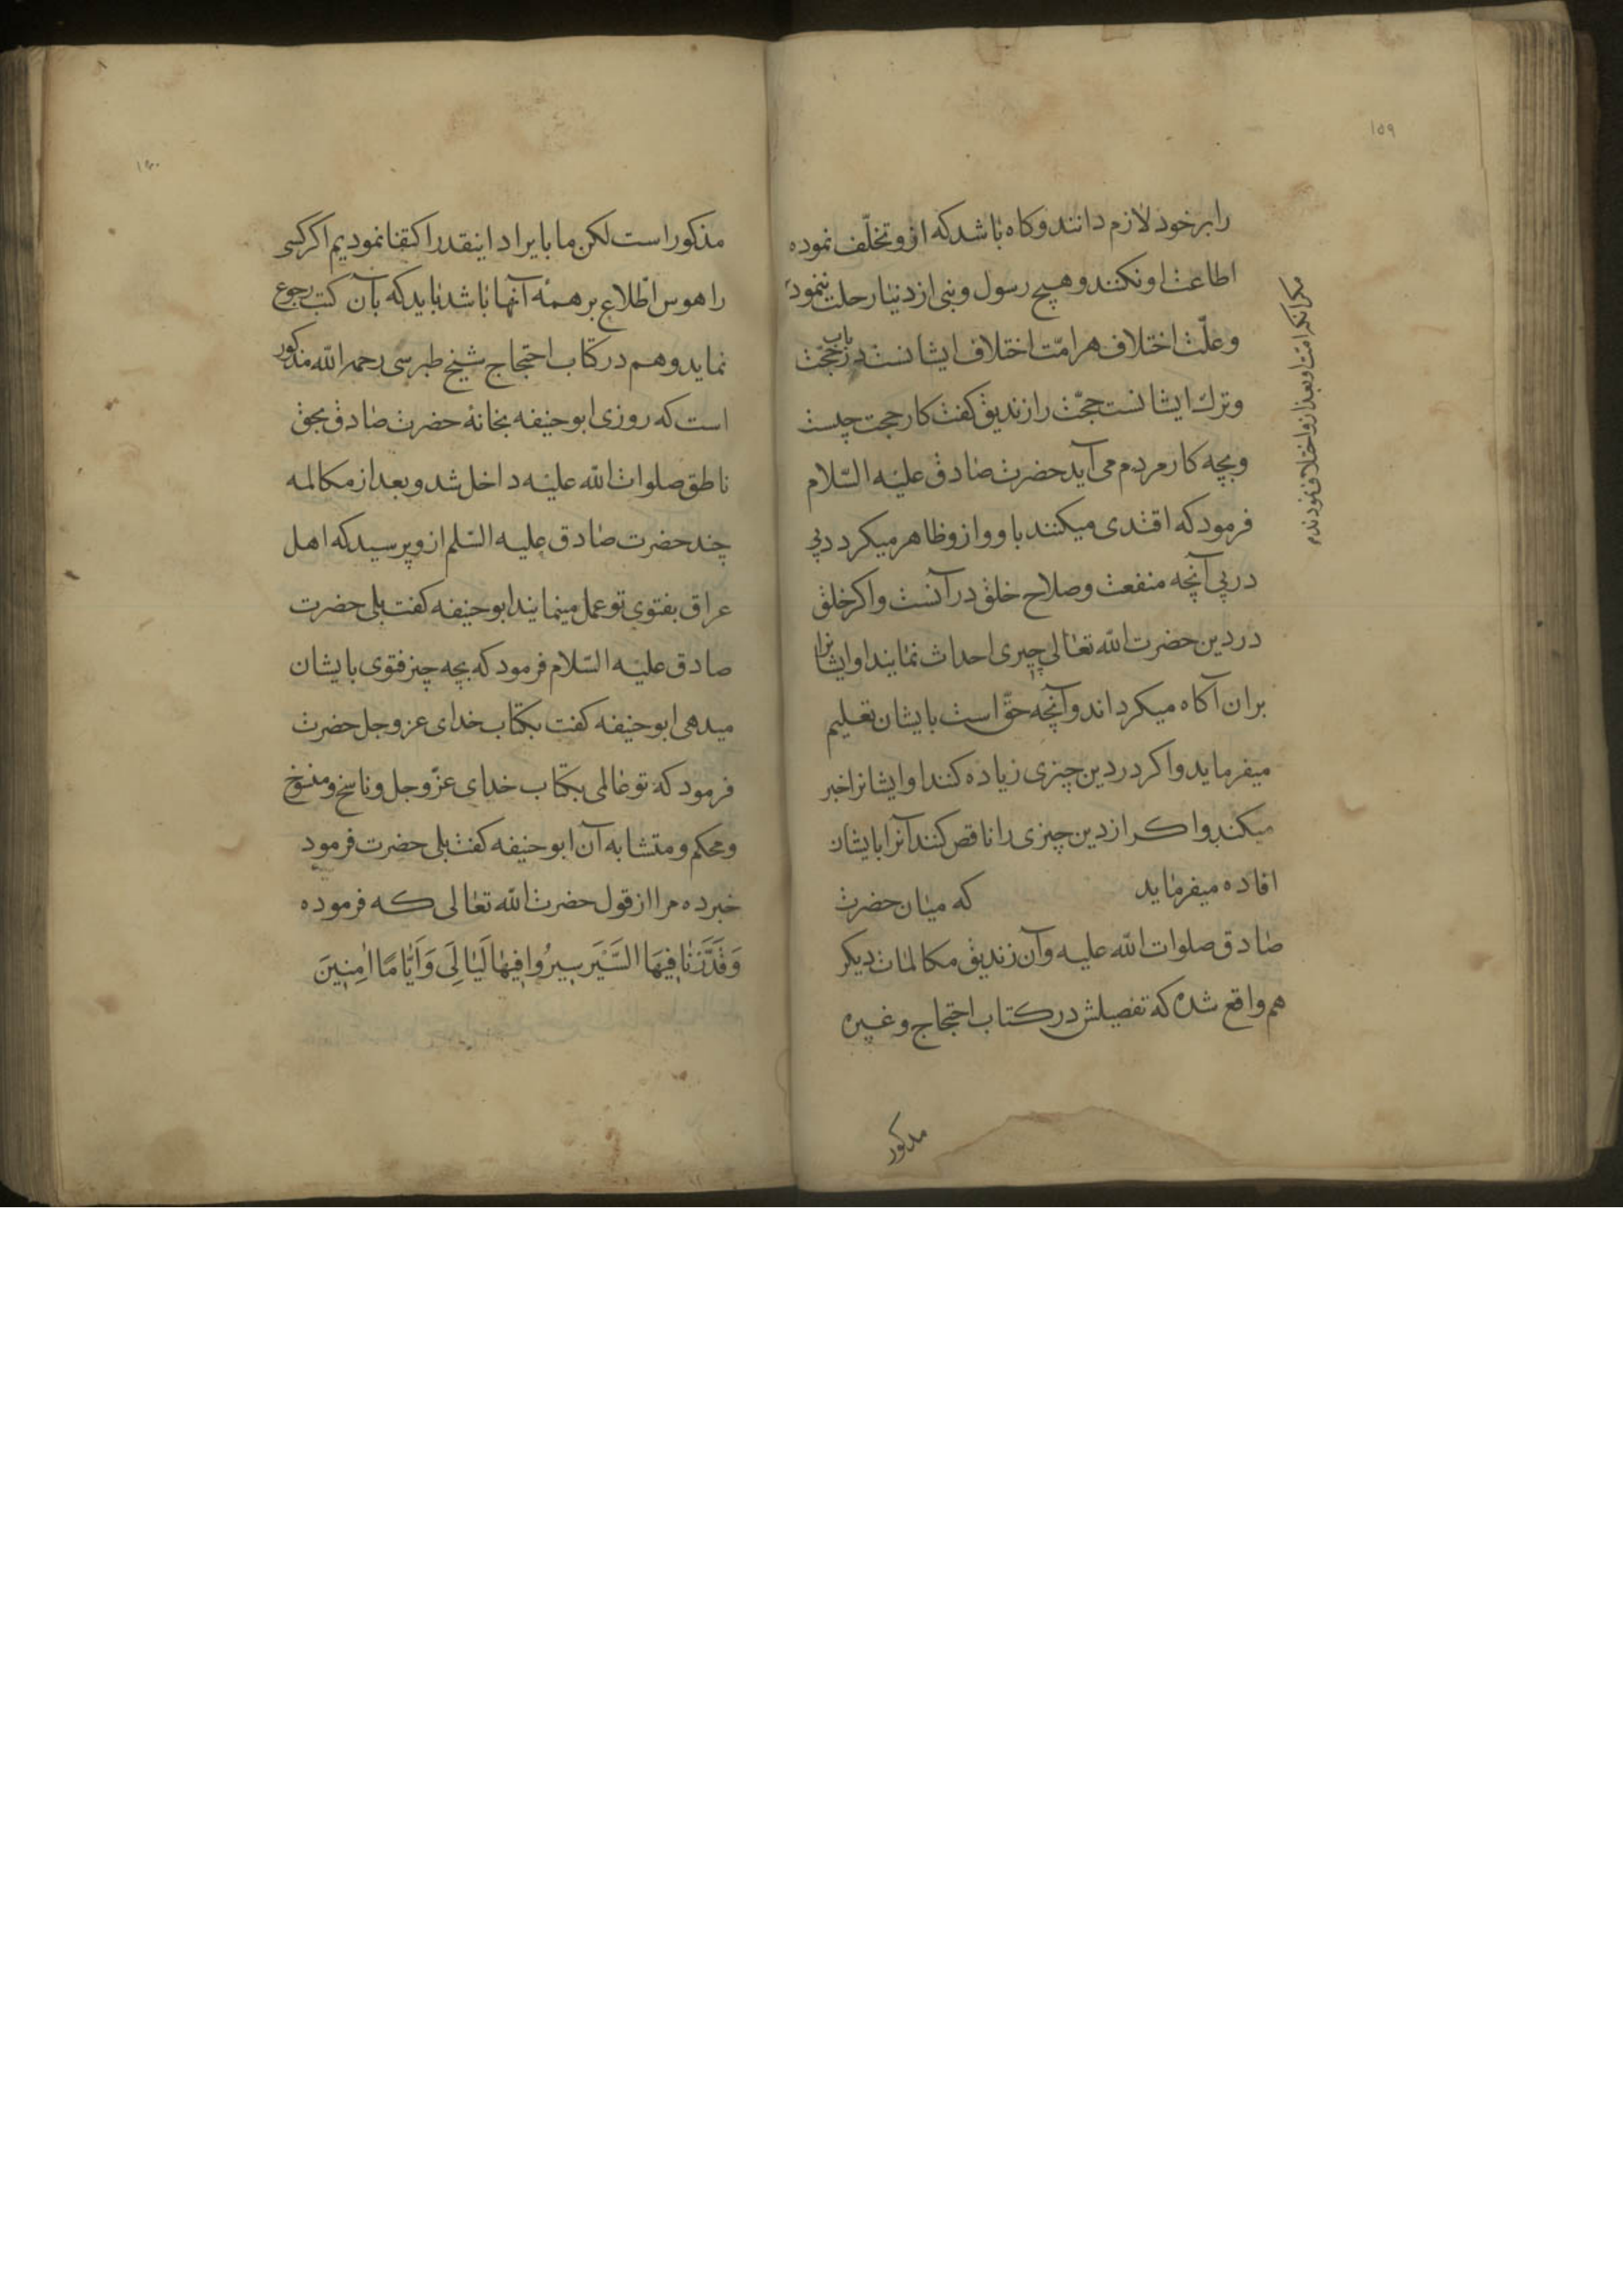 ۱۵۹
را بر خود لازم دانند و کاه باشد که ازو تخلّف نموده
اطاعت او نکنند و هیچ رسول و نبی از دنیا رحلت ننمود
مکر آنکه امّت او بعد ازو اختلاف نمودند
وعلّت اختلاف هر امّت اختلاف ایشانست در باب حجّت
وترك ایشانست حجّت را زندیق کفت کار حجت چیست
وبچه کار مردم می آید حضرت صادق علیه السّلام
فرمود که اقتدی میکنند باو و از و ظاهر میکردد پی
در پی آنچه منفعت وصلاح خلق در آنست و اکر خلق
در دین حضرت الله تعالی چیزی احداث نمایند او ایشانرا
بران آکاه میکرداند و آنچه حقّ است بایشان تعلیم
میفرماید و اکر در دین چیزی زیاده کنند او ایشانرا خبر
میکند و اکر از دین چیزی را ناقص کنند آنرا بایشان
افاده میفرماید که میان حضرت
صادق صلوات الله علیه و آن زندیق مکالمات دیکر
هم واقع شده که تفصیلش در کتاب احتجاج و غیره
مذکور
۱۶۰
مذکور است لکن ما بایراد اینقدر اکتفا نمودیم اکر کسی
را هوس اطّلاع بر همۀ آنها باشد باید که بآن کتب رجوع
نماید وهم در کتاب احتجاج شیخ طبرسی رحمه الله مذکور
است که روزی ابو حنیفه بخانۀ حضرت صادق بحق
ناطق صلوات الله علیه داخل شد و بعد از مکالمه
چند حضرت صادق علیه السّلم از و پرسید که اهل
عراق بفتوی تو عمل مینمایند ابو حنیفه کفت بلی حضرت
صادق علیه السّلام فرمود که بچه چیز فتوی بایشان
میدهی ابو حنیفه کفت بکتاب خدای عز وجل حضرت
فرمود که تو عالمی بکتاب خدای عزّ وجل و ناسخ و منسوخ
و محکم و متشابه آن ابو حنیفه کفت بلی حضرت فرمود
خبر ده مرا از قول حضرت الله تعالی که فرموده
وَقَدَّرْنَا فِیهَا السَّیْرَ سِیرُوا فِیهَا لَیَالِیَ وَاَیَّامًا اٰمِنِینَ